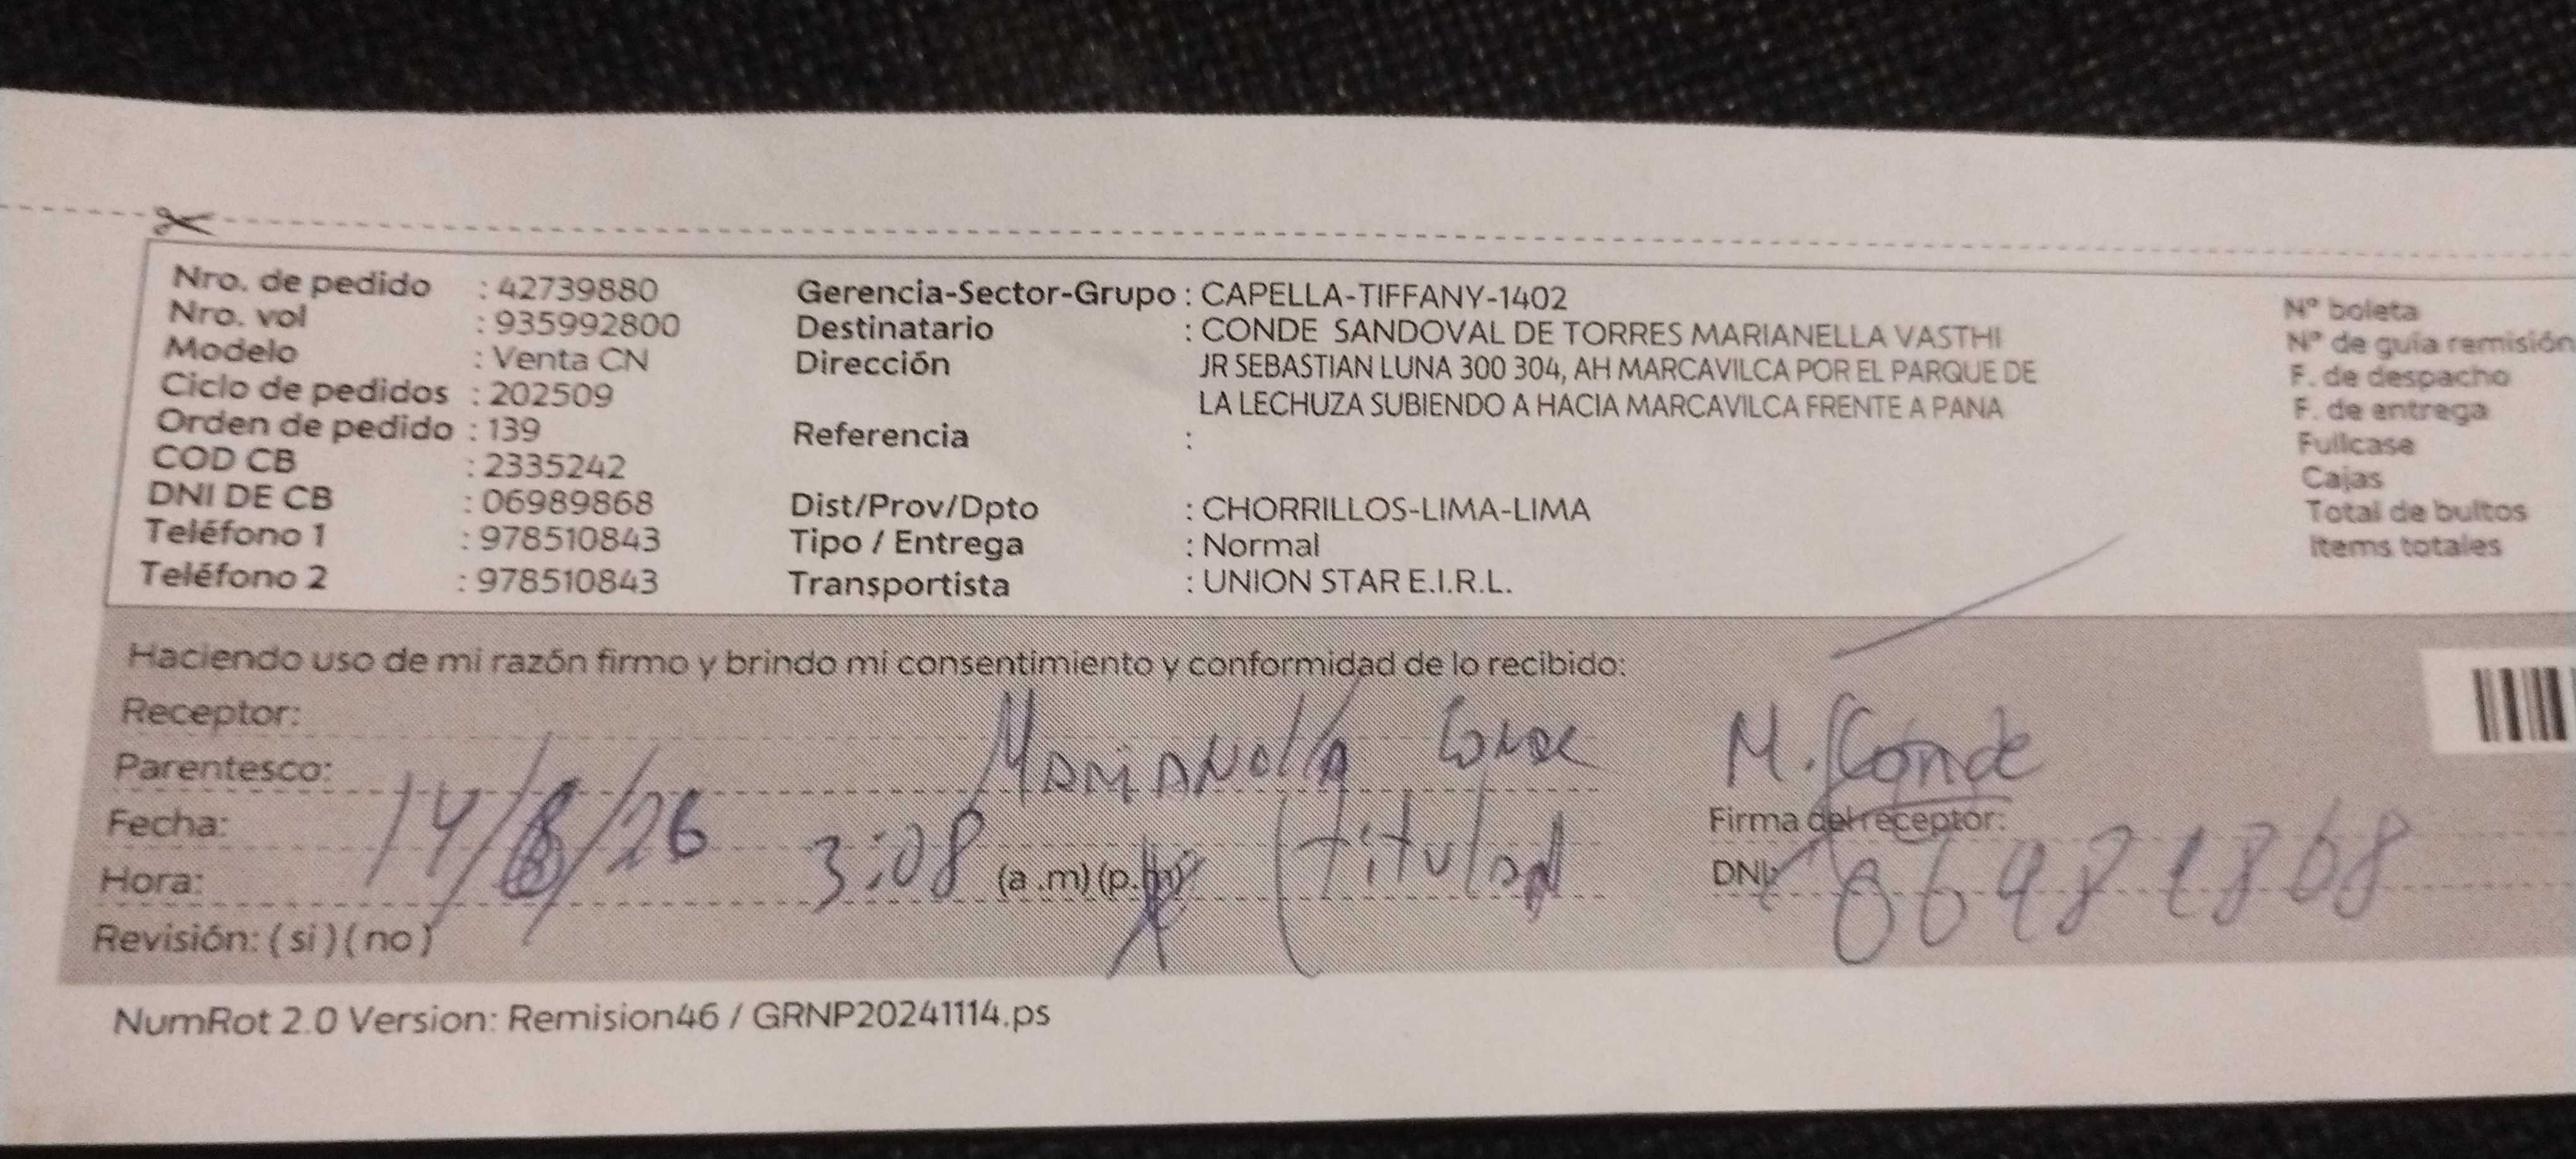 Nro. de pedido : 42739880
Nro. vol : 935992800
Modelo : Venta CN
Ciclo de pedidos : 202509
Orden de pedido : 139
COD CB : 2335242
DNI DE CB : 06989868
Teléfono 1 : 978510843
Teléfono 2 : 978510843
Gerencia-Sector-Grupo : CAPELLA-TIFFANY-1402
Destinatario : CONDE SANDOVAL DE TORRES MARIANELLA VASTHI
Dirección JR SEBASTIAN LUNA 300 304, AH MARCAVILCA POR EL PARQUE DE
LA LECHUZA SUBIENDO A HACIA MARCAVILCA FRENTE A PANA
Referencia :
Dist/Prov/Dpto : CHORRILLOS-LIMA-LIMA
Tipo / Entrega : Normal
Transportista : UNION STAR E.I.R.L.
Nº boleta
Nº de guía remisión
F. de despacho
F. de entrega
Fullcase
Cajas
Total de bultos
Items totales
Haciendo uso de mi razón firmo y brindo mi consentimiento y conformidad de lo recibido:
Receptor: Conde
Parentesco:
Fecha: 14/8/26
Hora: 3:08 (a .m) (p.m)
Revisión: ( si ) ( no )
M. Conde
Firma del receptor:
DNI:
NumRot 2.0 Version: Remision46 / GRNP20241114.ps